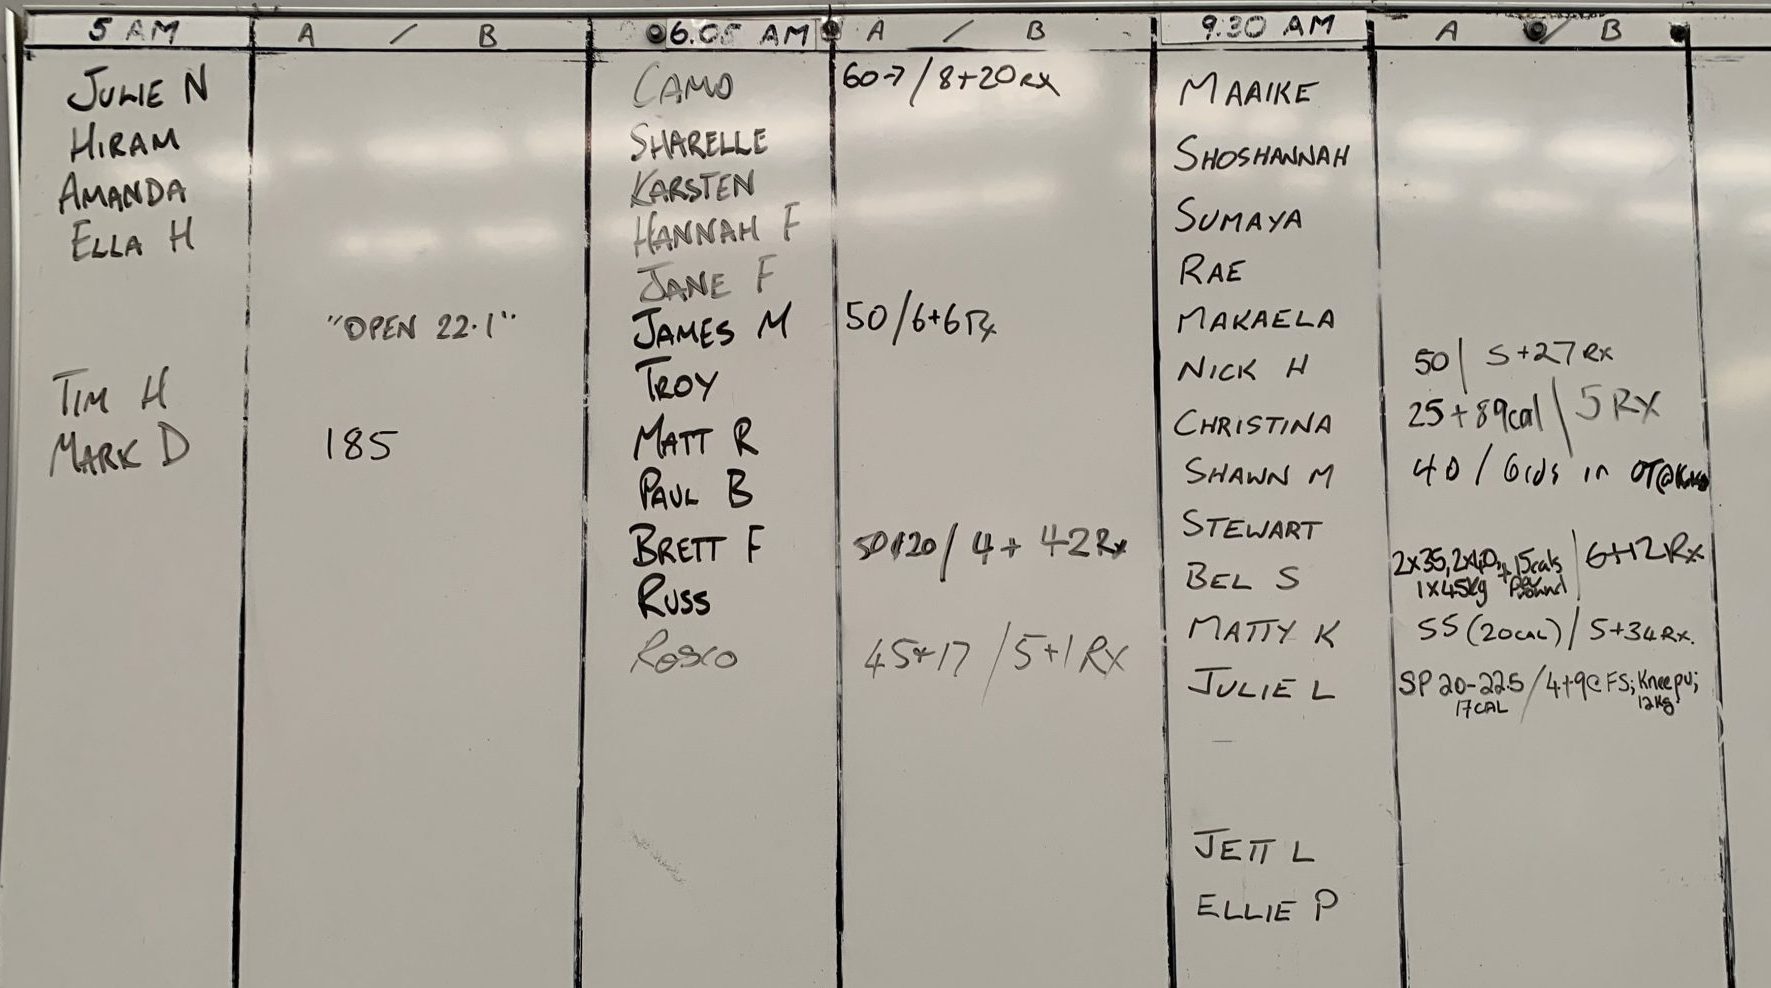 5 AM A / B 6.05 AM A / B 9.30 AM A / B
JULIE N
HIRAM
AMANDA
ELLA H
"OPEN 22.1"
TIM H
MARK D 185
CAMO 60-7 / 8+20 RX
SHARELLE
KARSTEN
HANNAH F
JANE F
JAMES M 50 / 6+6 Rx
TROY
MATT R
PAUL B
BRETT F / 4 + 42 Rx
RUSS
ROSCO 45+17 / 5+1 RX
MAAIKE
SHOSHANNAH
SUMAYA
RAE
MAKAELA
NICK H 50 | 5+27 Rx
CHRISTINA 25 + 89cal | 5 RX
SHAWN M 40 / in
STEWART
BEL S 2x35, 2x40, +15cals | 6+12 Rx
1x45kg
MATTY K 55 (20CAL) / 5+34 Rx.
JULIE L SP 20-22.5 / 4+9@ FS; Knee pu;
17CAL 12kg
JETT L
ELLIE P